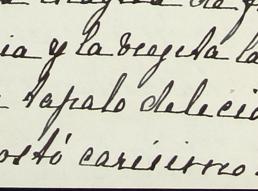 ia y la vegeta la
tapalo delicio
ostó carisimo.